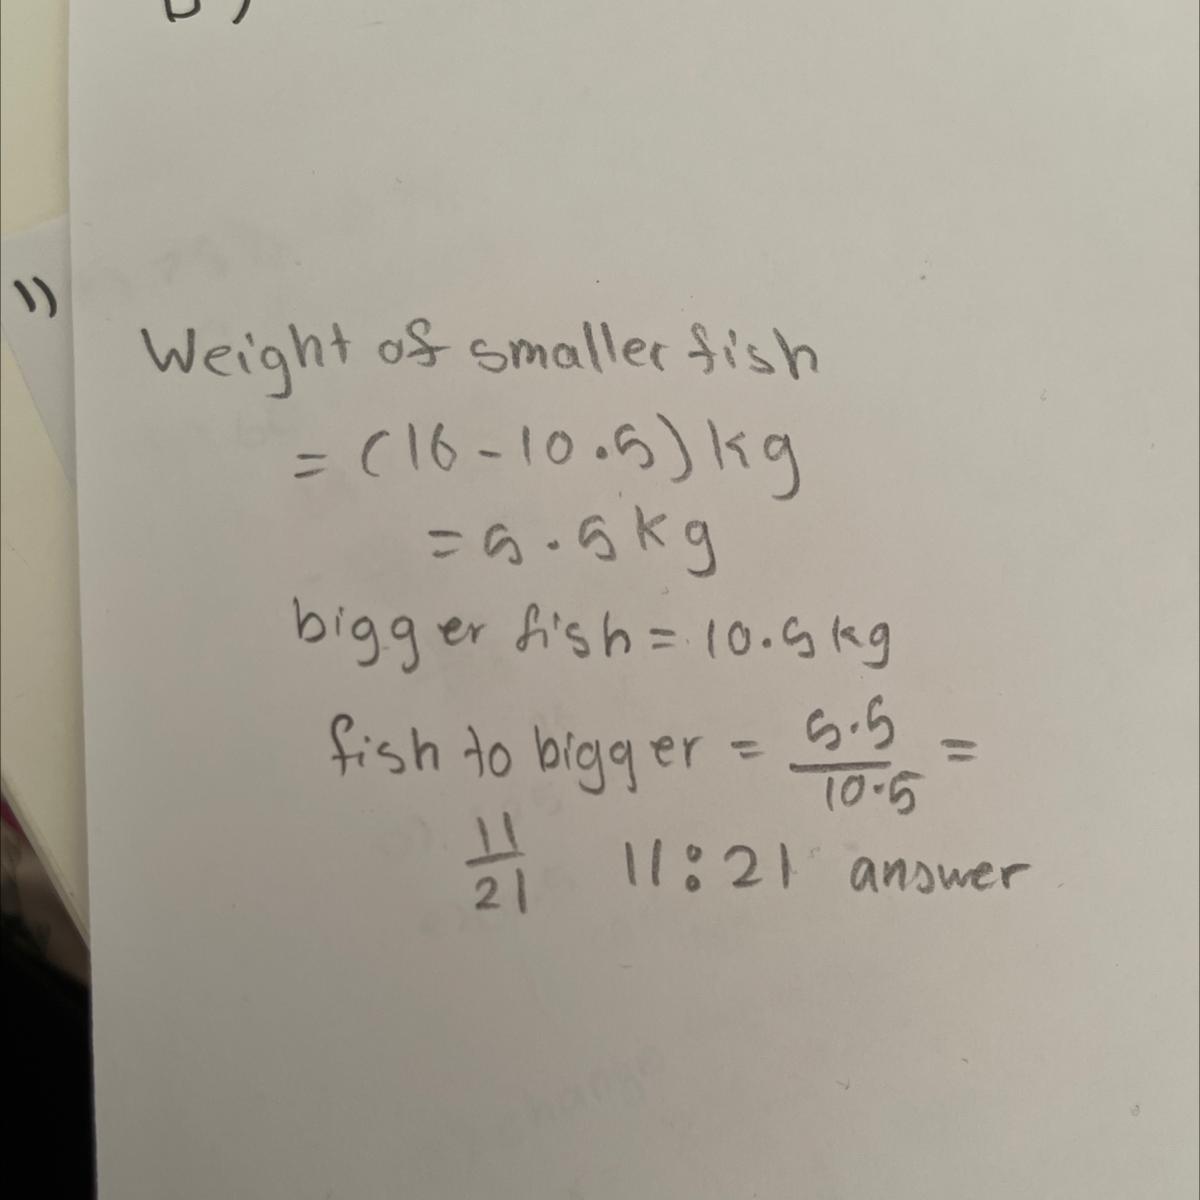 1)
Weight of smaller fish
= (16 - 10.5) kg
= 5.5 kg
bigger fish = 10.5 kg
fish to bigger = 5.5/10.5 =
11/21 11:21 answer